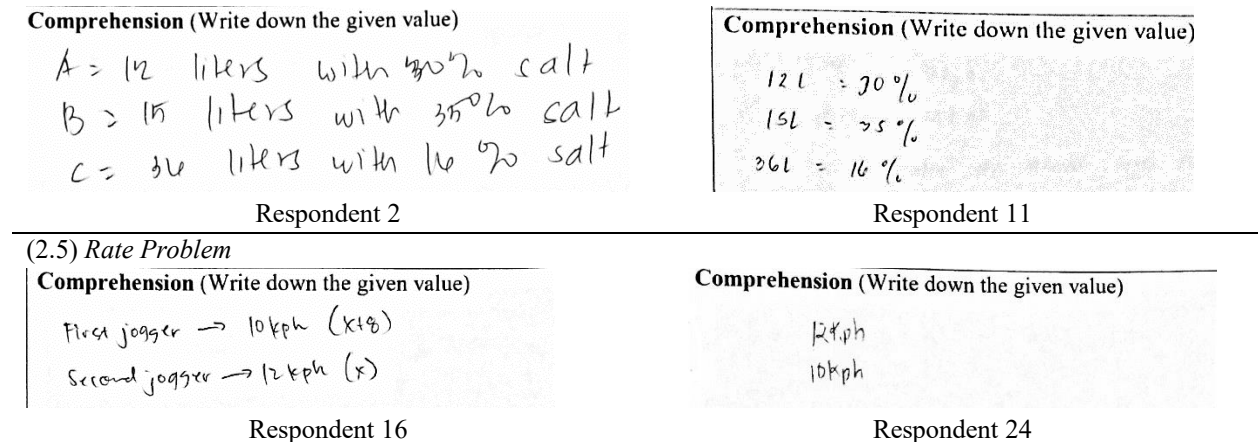 Comprehension (Write down the given value)
A = 12 liters with 30% salt
B = 15 liters with 35% salt
C = 36 liters with 16% salt
Respondent 2
Comprehension (Write down the given value)
12 L = 30 %
15L = 35 %
36L = 16 %
Respondent 11
(2.5) Rate Problem
Comprehension (Write down the given value)
First jogger → 10 kph (x+8)
Second jogger → 12 kph (x)
Respondent 16
Comprehension (Write down the given value)
12kph
10kph
Respondent 24